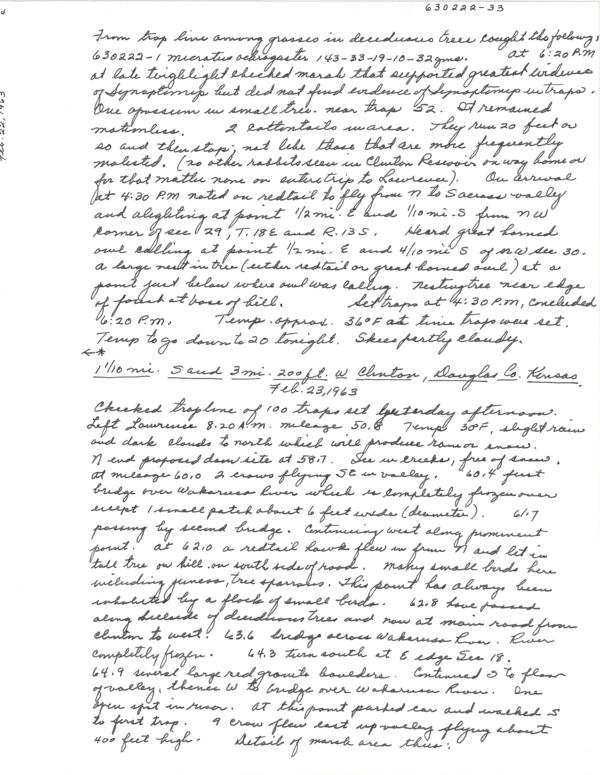 630222-33
Feb. 22, 1963
From trap line among grasses in deciduous trees caught the following:
630222-1 Microtus ochrogaster 143-33-19-10-32gms. at 6:20 P.M
at late twiglight checked marsh that supported greatest evidence
of Synaptomys but did not find evidence of Synaptomys in traps.
One opossum in small tree near trap 52. It remained
motionless. 2 cottontails in area. They run 20 feet or
so and then stop; not like those that are more frequently
molested. (no other rabbits seen in Clinton Resevoir on way home or
for that matter none on entire trip to Lawrence). On arrival
at 4:30 P.M noted on redtail to fly from N to S across valley
and alighting at point 1/2 mi. E and 1/10 mi. S from NW
corner of sec 29, T.18E and R.13S. Heard great horned
owl calling at point 1/2 mi. E and 4/10 mi S of NW sec 30.
A large nest in tree (either redtail or great horned owl) at a
point just below where owl was calling. Nesting tree near edge
of forest at base of hill. Set traps at 4:30 P.M, concluded
6:20 P.M. Temp. approx. 36°F at time traps were set.
Temp to go down to 20 tonight. Skies partly cloudy.
1 1/10 mi. S and 3 mi. 200 ft. W Clinton, Douglas Co. Kansas.
Feb. 23, 1963
Checked trapline of 100 traps set yesterday afternoon.
Left Lawrence 8:20 A.M. mileage 50.8 Temp 30°F, slight rain
and dark clouds to north which will produce rain or snow.
N end proposed dam site at 58.7. Ice in creeks, free of snow.
At mileage 60.0 2 crows flying SE in valley. 60.4 first
bridge over Wakarusa River which is completely frozen over
except 1 small patch about 6 feet wide (diameter). 61.7
passing by second bridge. Continuing west along prominent
point. At 62.0 a redtail hawk flew in from N and lit in
tall tree on hill on south side of road. Many small birds here
including juncos, tree sparrows. This point has always been
inhabited by a flock of small birds. 62.8 have passed
along hillside of deciduous trees and now at main road from
Clinton to west. 63.6 bridge across Wakarusa River. River
completely frozen. 64.3 turn south at E edge Sec 18.
64.9 several large red granite boulders. Continued S to floor
of valley, thence W to bridge over Wakarusa River. One
open spot in river. At this point parked car and walked S
to first trap. 9 crow flew east up valley flying about
400 feet high. Detail of marsh area thus: